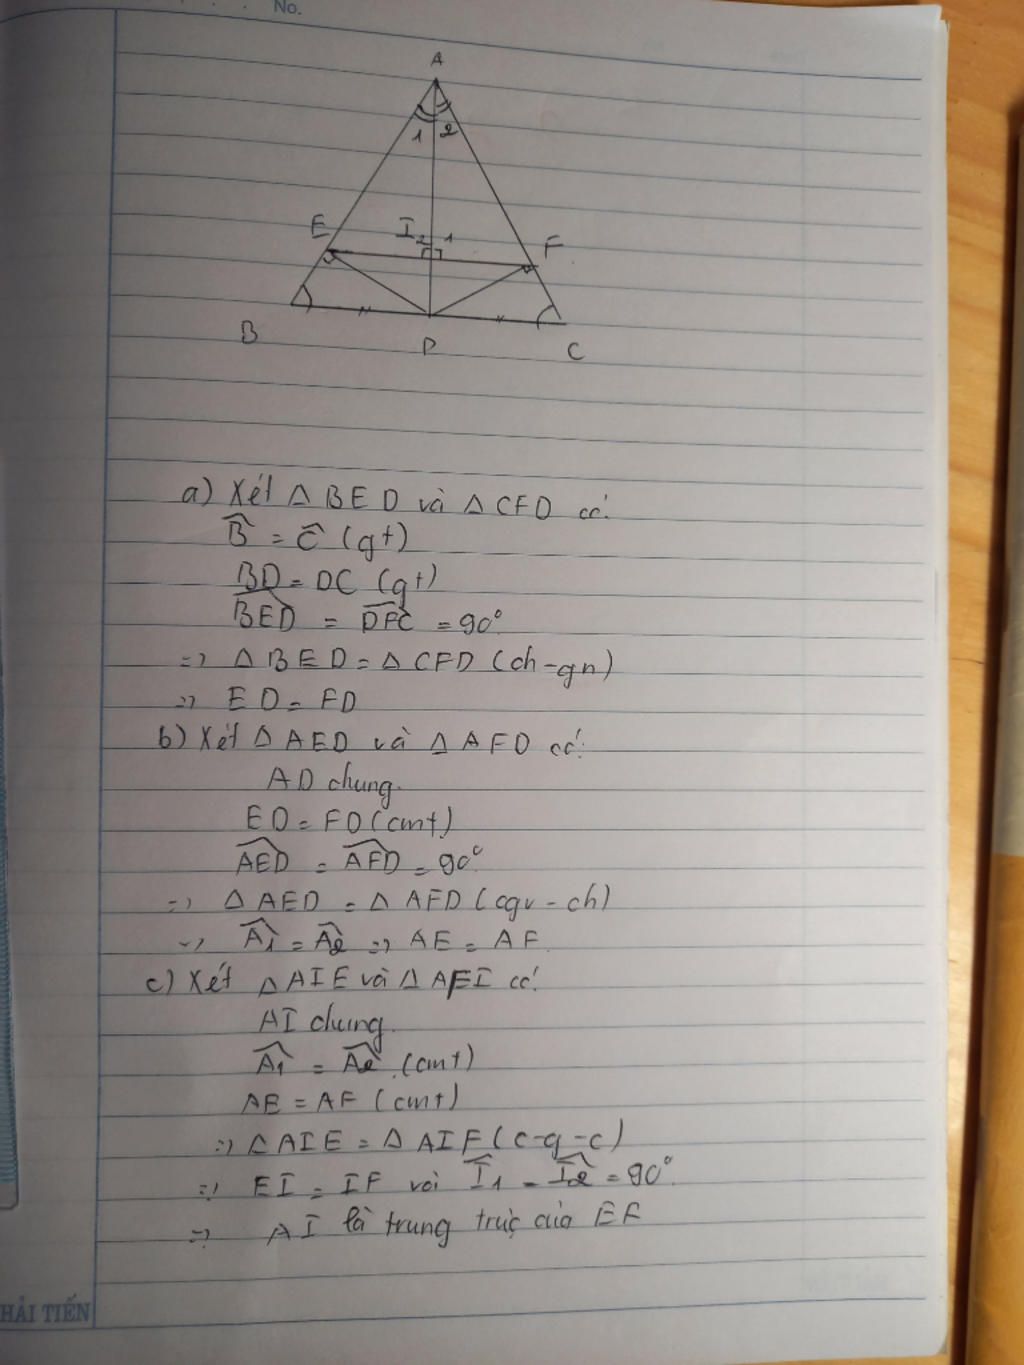 No.
A
1 2
E I 2 1 F
B D C
a) Xét Δ BED và Δ CFD có:
B̂ = Ĉ (gt)
BD = DC (gt)
BED = DFC = 90°
=> Δ BED = Δ CFD (ch-gn)
=> ED = FD
b) Xét Δ AED và Δ AFD có:
AD chung.
ED = FD (cmt)
AED = AFD = 90°
=> Δ AED = Δ AFD (cgv - ch)
=> A1 = A2 => AE = AF
c) Xét Δ AIE và Δ AFI có:
AI chung.
A1 = A2 (cmt)
AE = AF (cmt)
=> Δ AIE = Δ AIF (c-g-c)
=> EI = IF và I1 = I2 = 90°.
=> AI là trung trực của EF
HẢI TIẾN